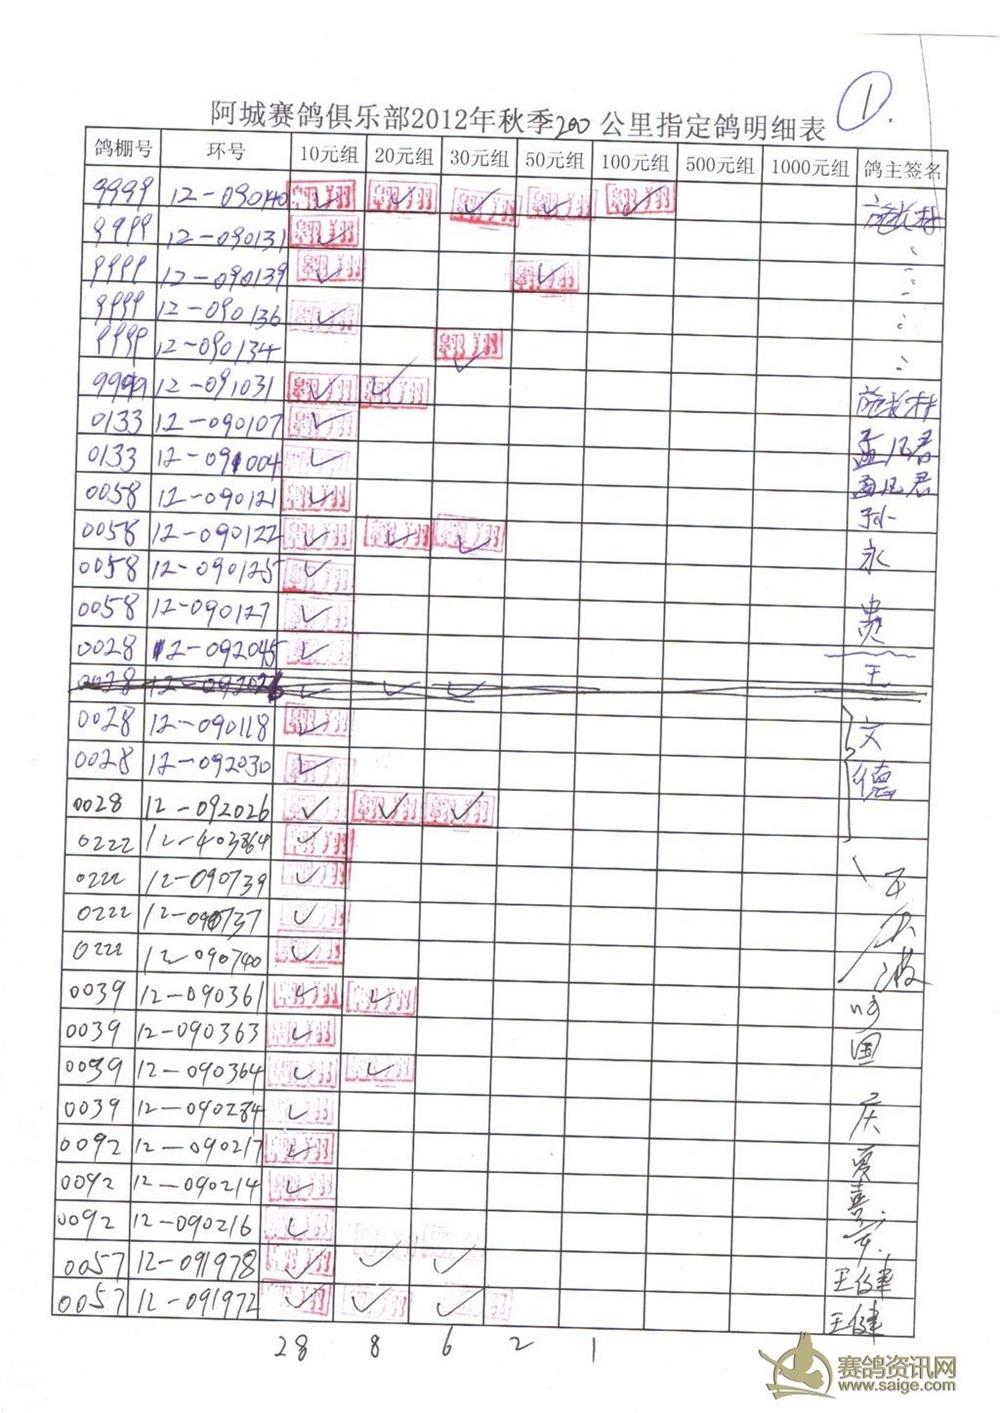 ①.
阿城赛鸽俱乐部2012年秋季200公里指定鸽明细表
鸽棚号 环号 10元组 20元组 30元组 50元组 100元组 500元组 1000元组 鸽主签名
9999 12-090140 翱翔✓ 翱翔✓ 翱翔✓ 翱翔✓ 翱翔✓
9999 12-090131 翱翔✓
9999 12-090139 翱翔✓ 翱翔✓
9999 12-090136 翱翔✓
9999 12-090134 翱翔✓
9999 12-091031 翱翔✓ 翱翔✓
0133 12-090107 翱翔✓
0133 12-091004 翱翔✓
0058 12-090121 翱翔✓
0058 12-090122 翱翔✓ 翱翔✓ 翱翔✓ 孙
0058 12-090125 翱翔✓ 永
0058 12-090127 翱翔✓ 贵
0028 12-092045 翱翔✓ 王
0028 12-092026 ✓ ✓ ✓
0028 12-090118 翱翔✓ 文
0028 12-092030 翱翔✓ 德
0028 12-092026 翱翔✓ 翱翔✓ 翱翔✓
0222 12-403864 翱翔✓
0222 12-090739 翱翔✓
0222 12-090737 翱翔✓
0222 12-090740 翱翔✓ 波
0039 12-090361 翱翔✓ 翱翔✓
0039 12-090363 翱翔✓ 国
0039 12-090364 翱翔✓ 翱翔✓
0039 12-090284 翱翔✓ 庆
0092 12-090217 翱翔✓ 贾
0092 12-090214 翱翔✓ 喜
0092 12-090216 翱翔✓
0057 12-091978 翱翔✓ ✓ ✓ 王健
0057 12-091972 翱翔✓ 翱翔✓ ✓ 王健
28 8 6 2 1
赛鸽资讯网
www.saige.com